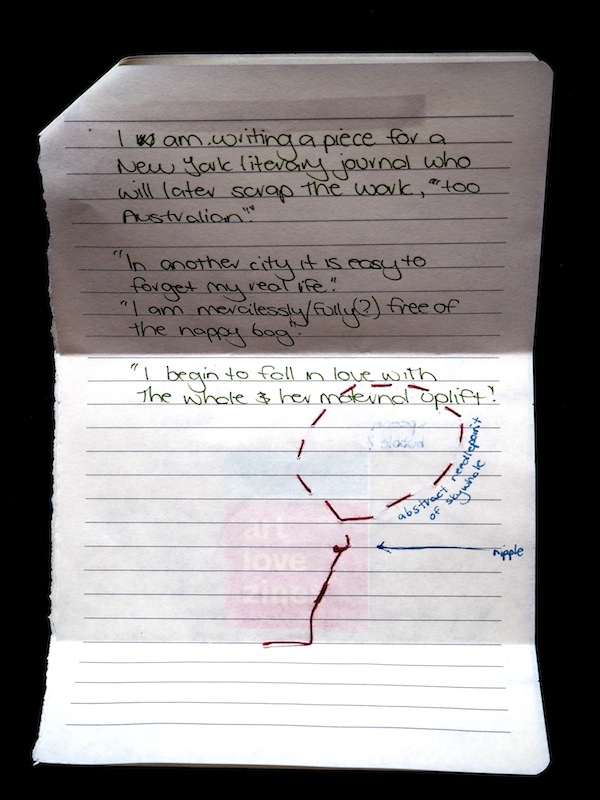 I am writing a piece for a
New York literary journal who
will later scrap the work, "'too
Australian'"
"In another city it is easy to
forget my real life."
"I am mercilessly/fully(?) free of
the nappy bag".
"I begin to fall in love with
The whale & her maternal uplift"
abstract needlepoint
of skywhale
nipple
speech
bubble?
art
love
zine